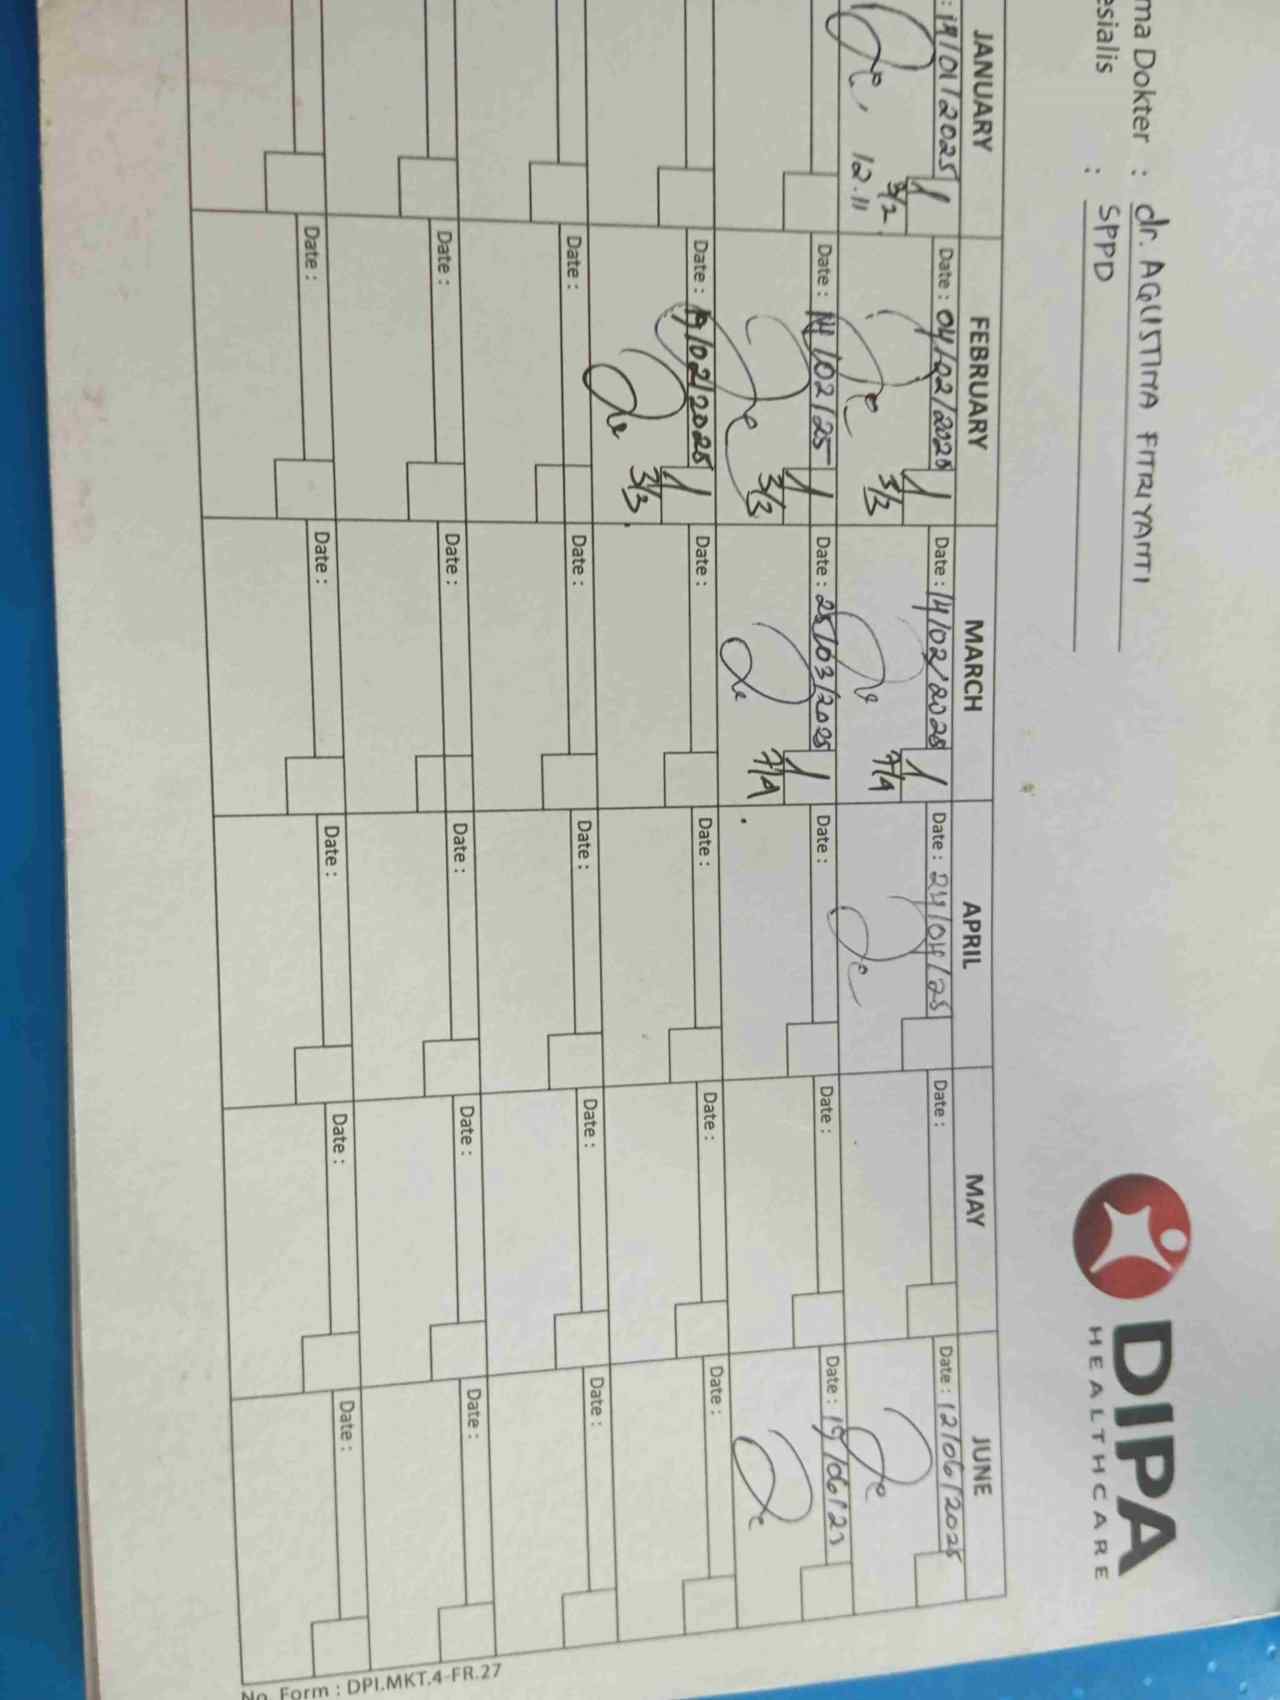 ma Dokter : dr. AGUSTINA FITRIYANTI
esialis : SPPD
DIPA
HEALTHCARE
JANUARY FEBRUARY MARCH APRIL MAY JUNE
: 19/01/2025 Date : 04/02/2025 Date : 14/02/2025 Date : 24/04/25 Date : Date : 12/06/2025
3/2 3/3 7/4
12.11
Date : 14/02/25 Date : 25/03/2025 Date : Date : Date : 19/06/23
3/3 7/4
Date : 19/02/2025 Date : Date : Date : Date :
3/3
Date : Date : Date : Date : Date :
Date : Date : Date : Date : Date :
Date : Date : Date : Date : Date :
No. Form : DPI.MKT.4-FR.27